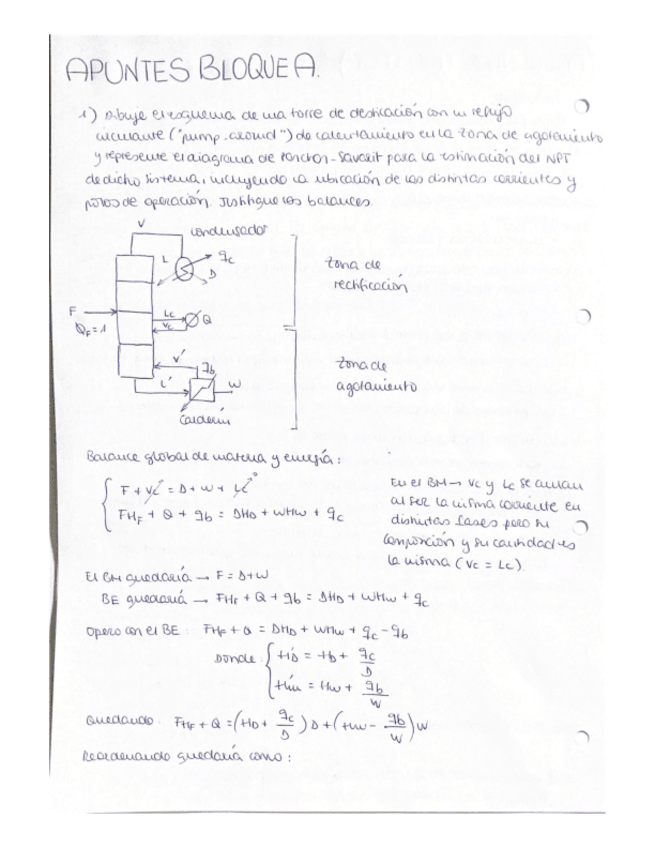 APUNTES BLOQUE A.
1) Dibuje el esquema de una torre de destilación con un reflujo
circulante ("pump-around") de calentamiento en la zona de agotamiento
y represente el diagrama de Ponchon-Savarit para la estimación del NPT
de dicho sistema, incluyendo la ubicación de las distintas corrientes y
polos de operación. Justifique los balances.
V
condensador
L
qc
D
zona de
rectificación
F
Lc
Vc
Q
QF=1
V'
qb
L'
W
Calderín
zona de
agotamiento
Balance global de materia y energía:
F + Vc = D + W + Lc
FHF + Q + qb = DHD + WHw + qc
En el BM → Vc y Lc se anulan
al ser la misma corriente en
distintas fases pero su
composición y su cantidad es
la misma (Vc = Lc)
El BM quedaría → F = D+W
BE quedaría → FHF + Q + qb = DHD + WHw + qc
Opero con el BE: FHF + Q = DHD + WHw + qc - qb
Donde:
H'D = HD + qc/D
H'w = Hw + qb/W
Quedando: FHF + Q = (HD + qc/D) D + (Hw - qb/W) W
Reordenando quedaría como: